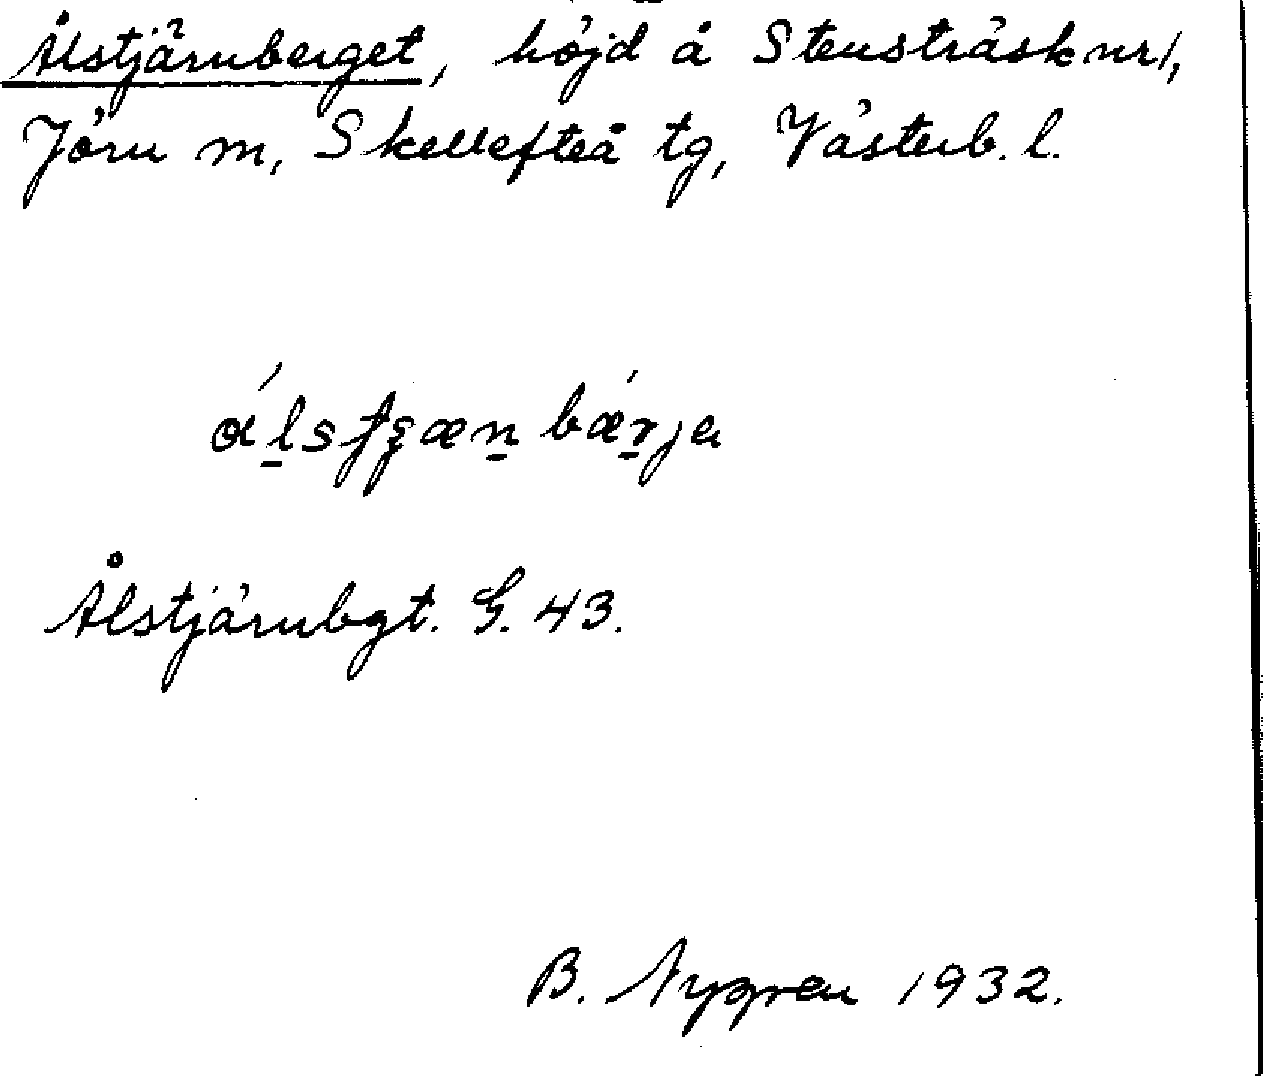 Ålstjärnberget, höjd å Stensträsk nr 1,
Jörn m, Skellefteå tg, Västerb. l.
Ålstjärnbgt. G. 43.
B. Nygren 1932.